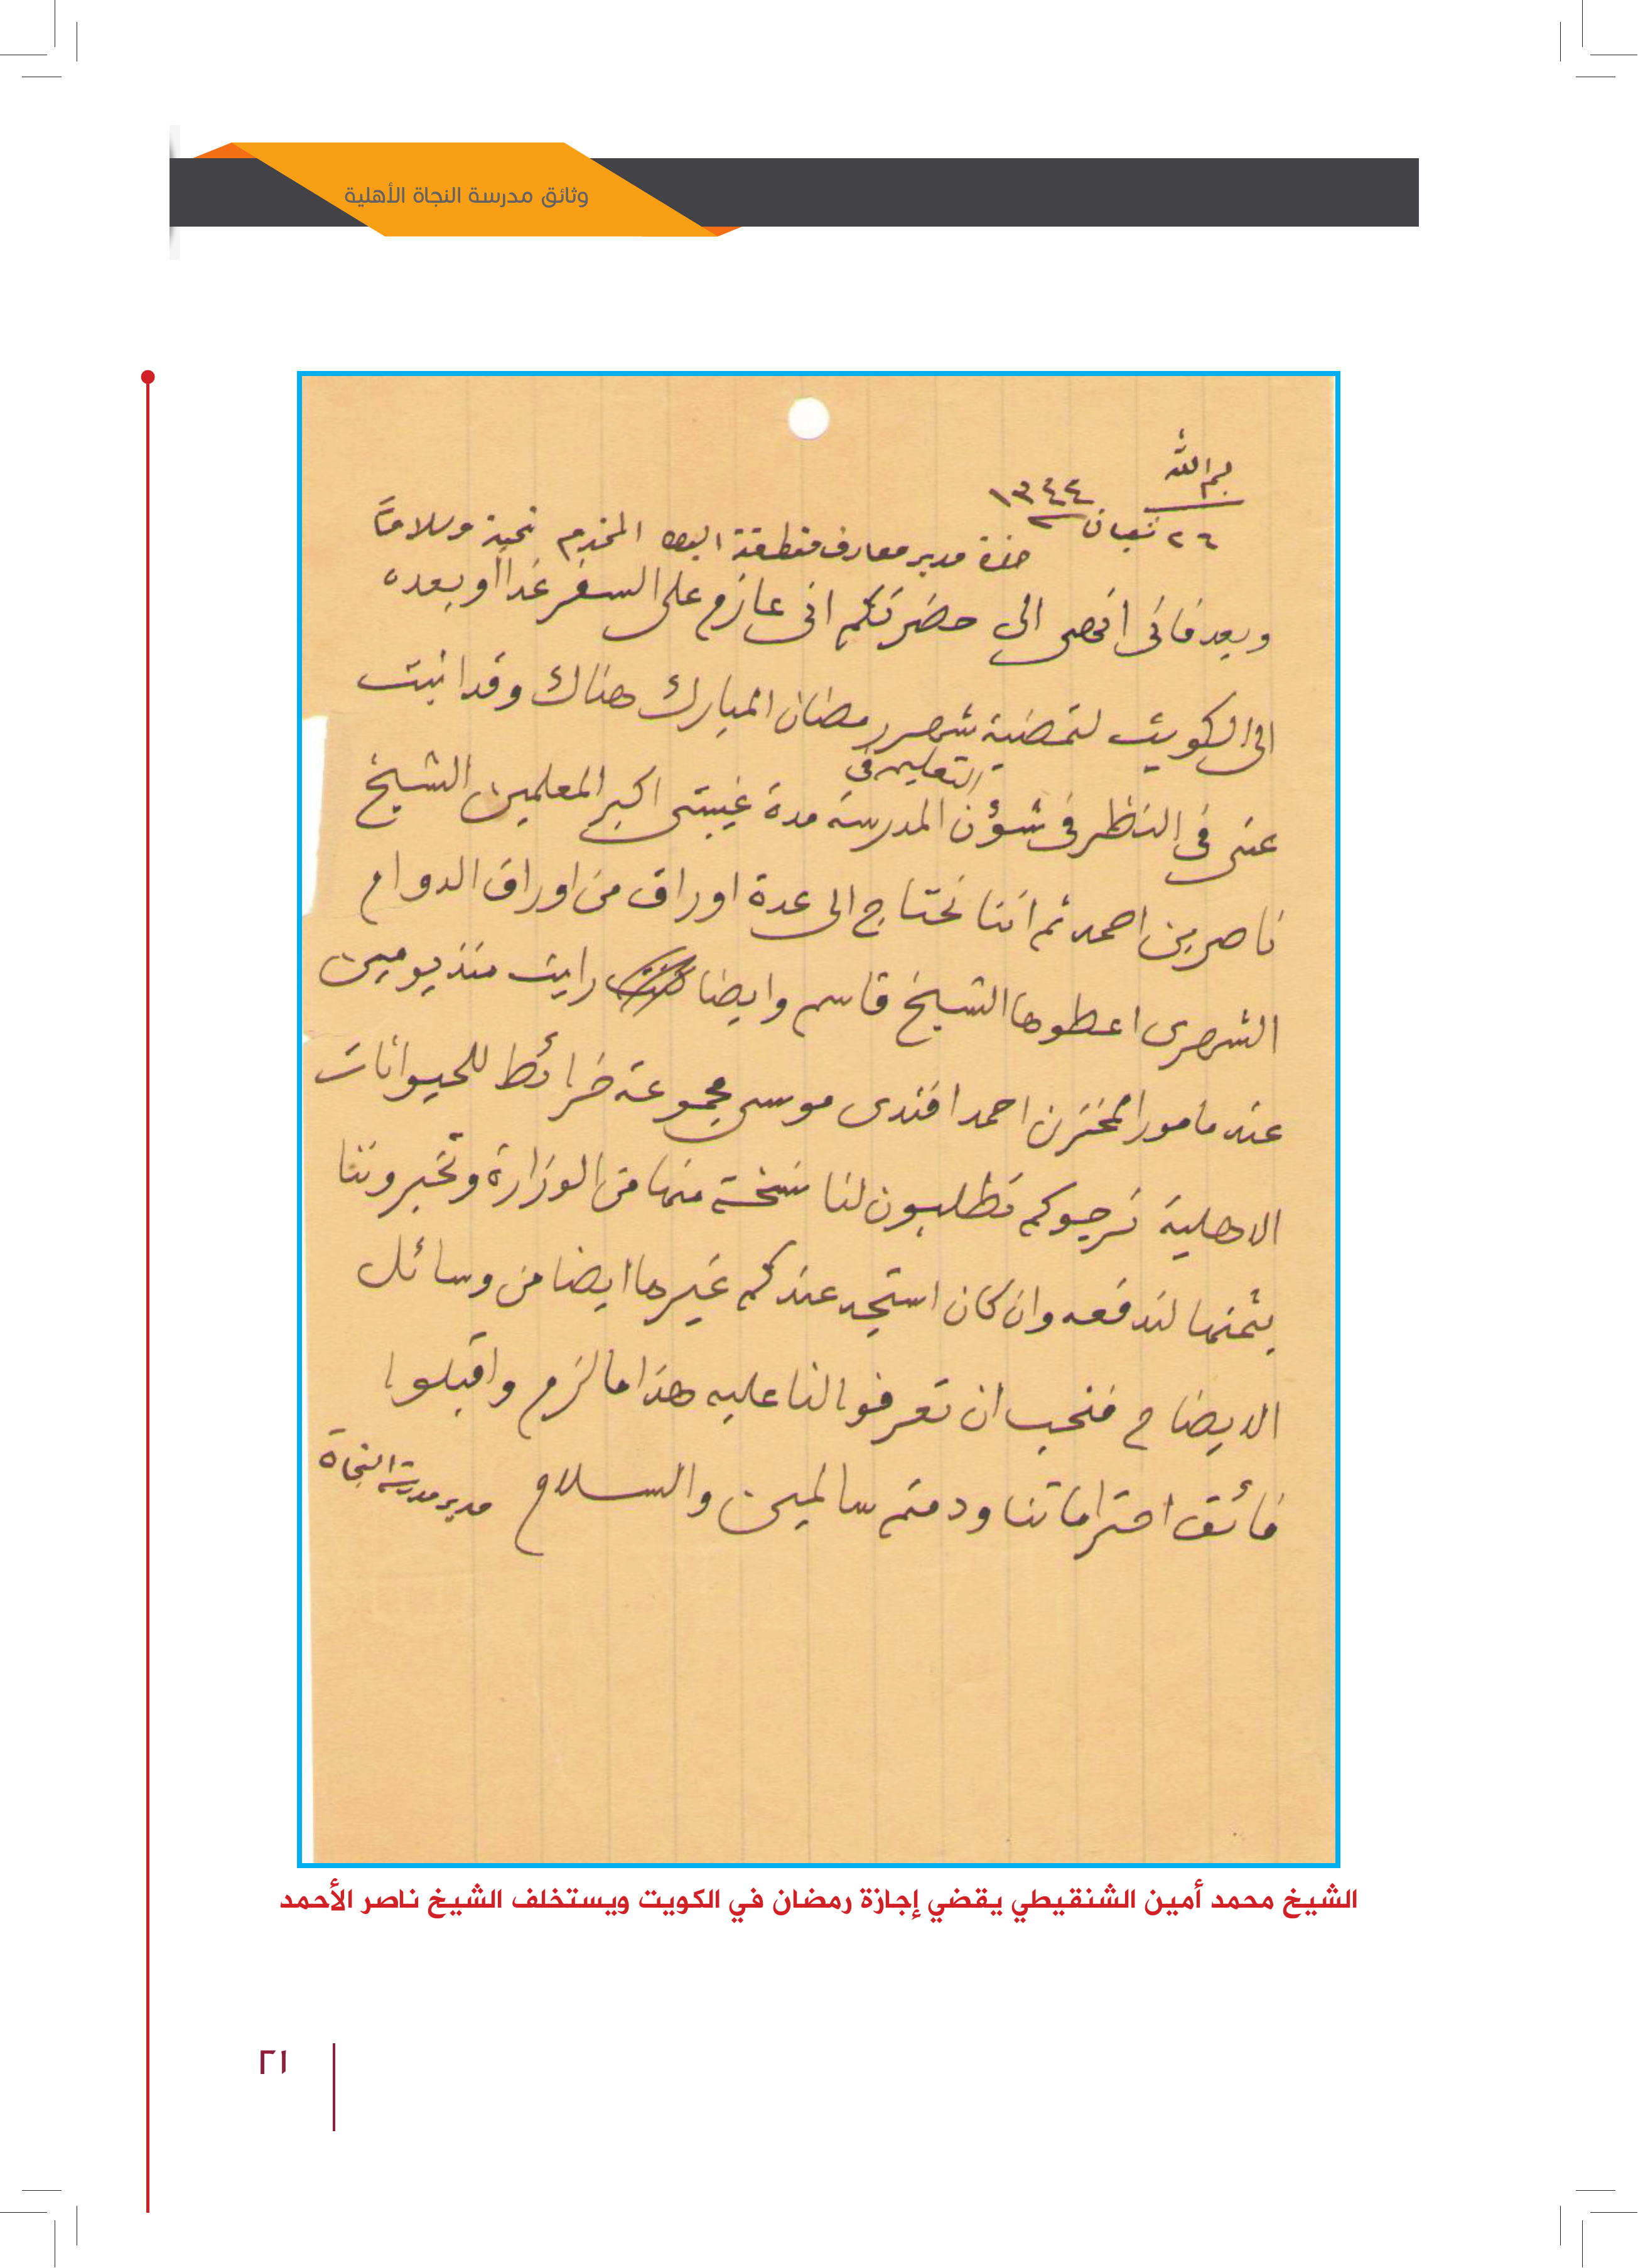 وثائق مدرسة النجاة الأهلية
بسم الله
٢٦ شعبان ١٣٤٤
حضرة مدير معارف منطقة البصرة المحترم تحية وسلاما
وبعد فانى افحصى الى حضرتكم انى عازم على السفر غدا أو بعده
الى الكويت لتمضية شهر رمضان المبارك هناك وقد انبت
عنى فى النظر فى شؤن التعليم فى المدرسة مدة غيبتى اكبر المعلمين الشيخ
ناصر بن احمد ثم اننا نحتاج الى عدة اوراق من اوراق الدوام
الشهرى اعطوها الشيخ قاسم وايضا رايت منذ يومين
عند مامور المخزن احمد افندى موسى مجموعة خرائط للحيوانات
الاهلية نرجوكم تطلبون لنا نسخة منها من الوزارة وتخبروننا
بثمنها لندفعه وان كان استجد عندكم غيرها ايضا من وسائل
الايضاح فنحب ان تعرفوا لنا عليه هذا ما لزم واقبلوا
فائق احتراماتنا ودمتم سالمين والسلام مدير مدرسة النجاة
الشيخ محمد أمين الشنقيطي يقضي إجازة رمضان في الكويت ويستخلف الشيخ ناصر الأحمد
٢١